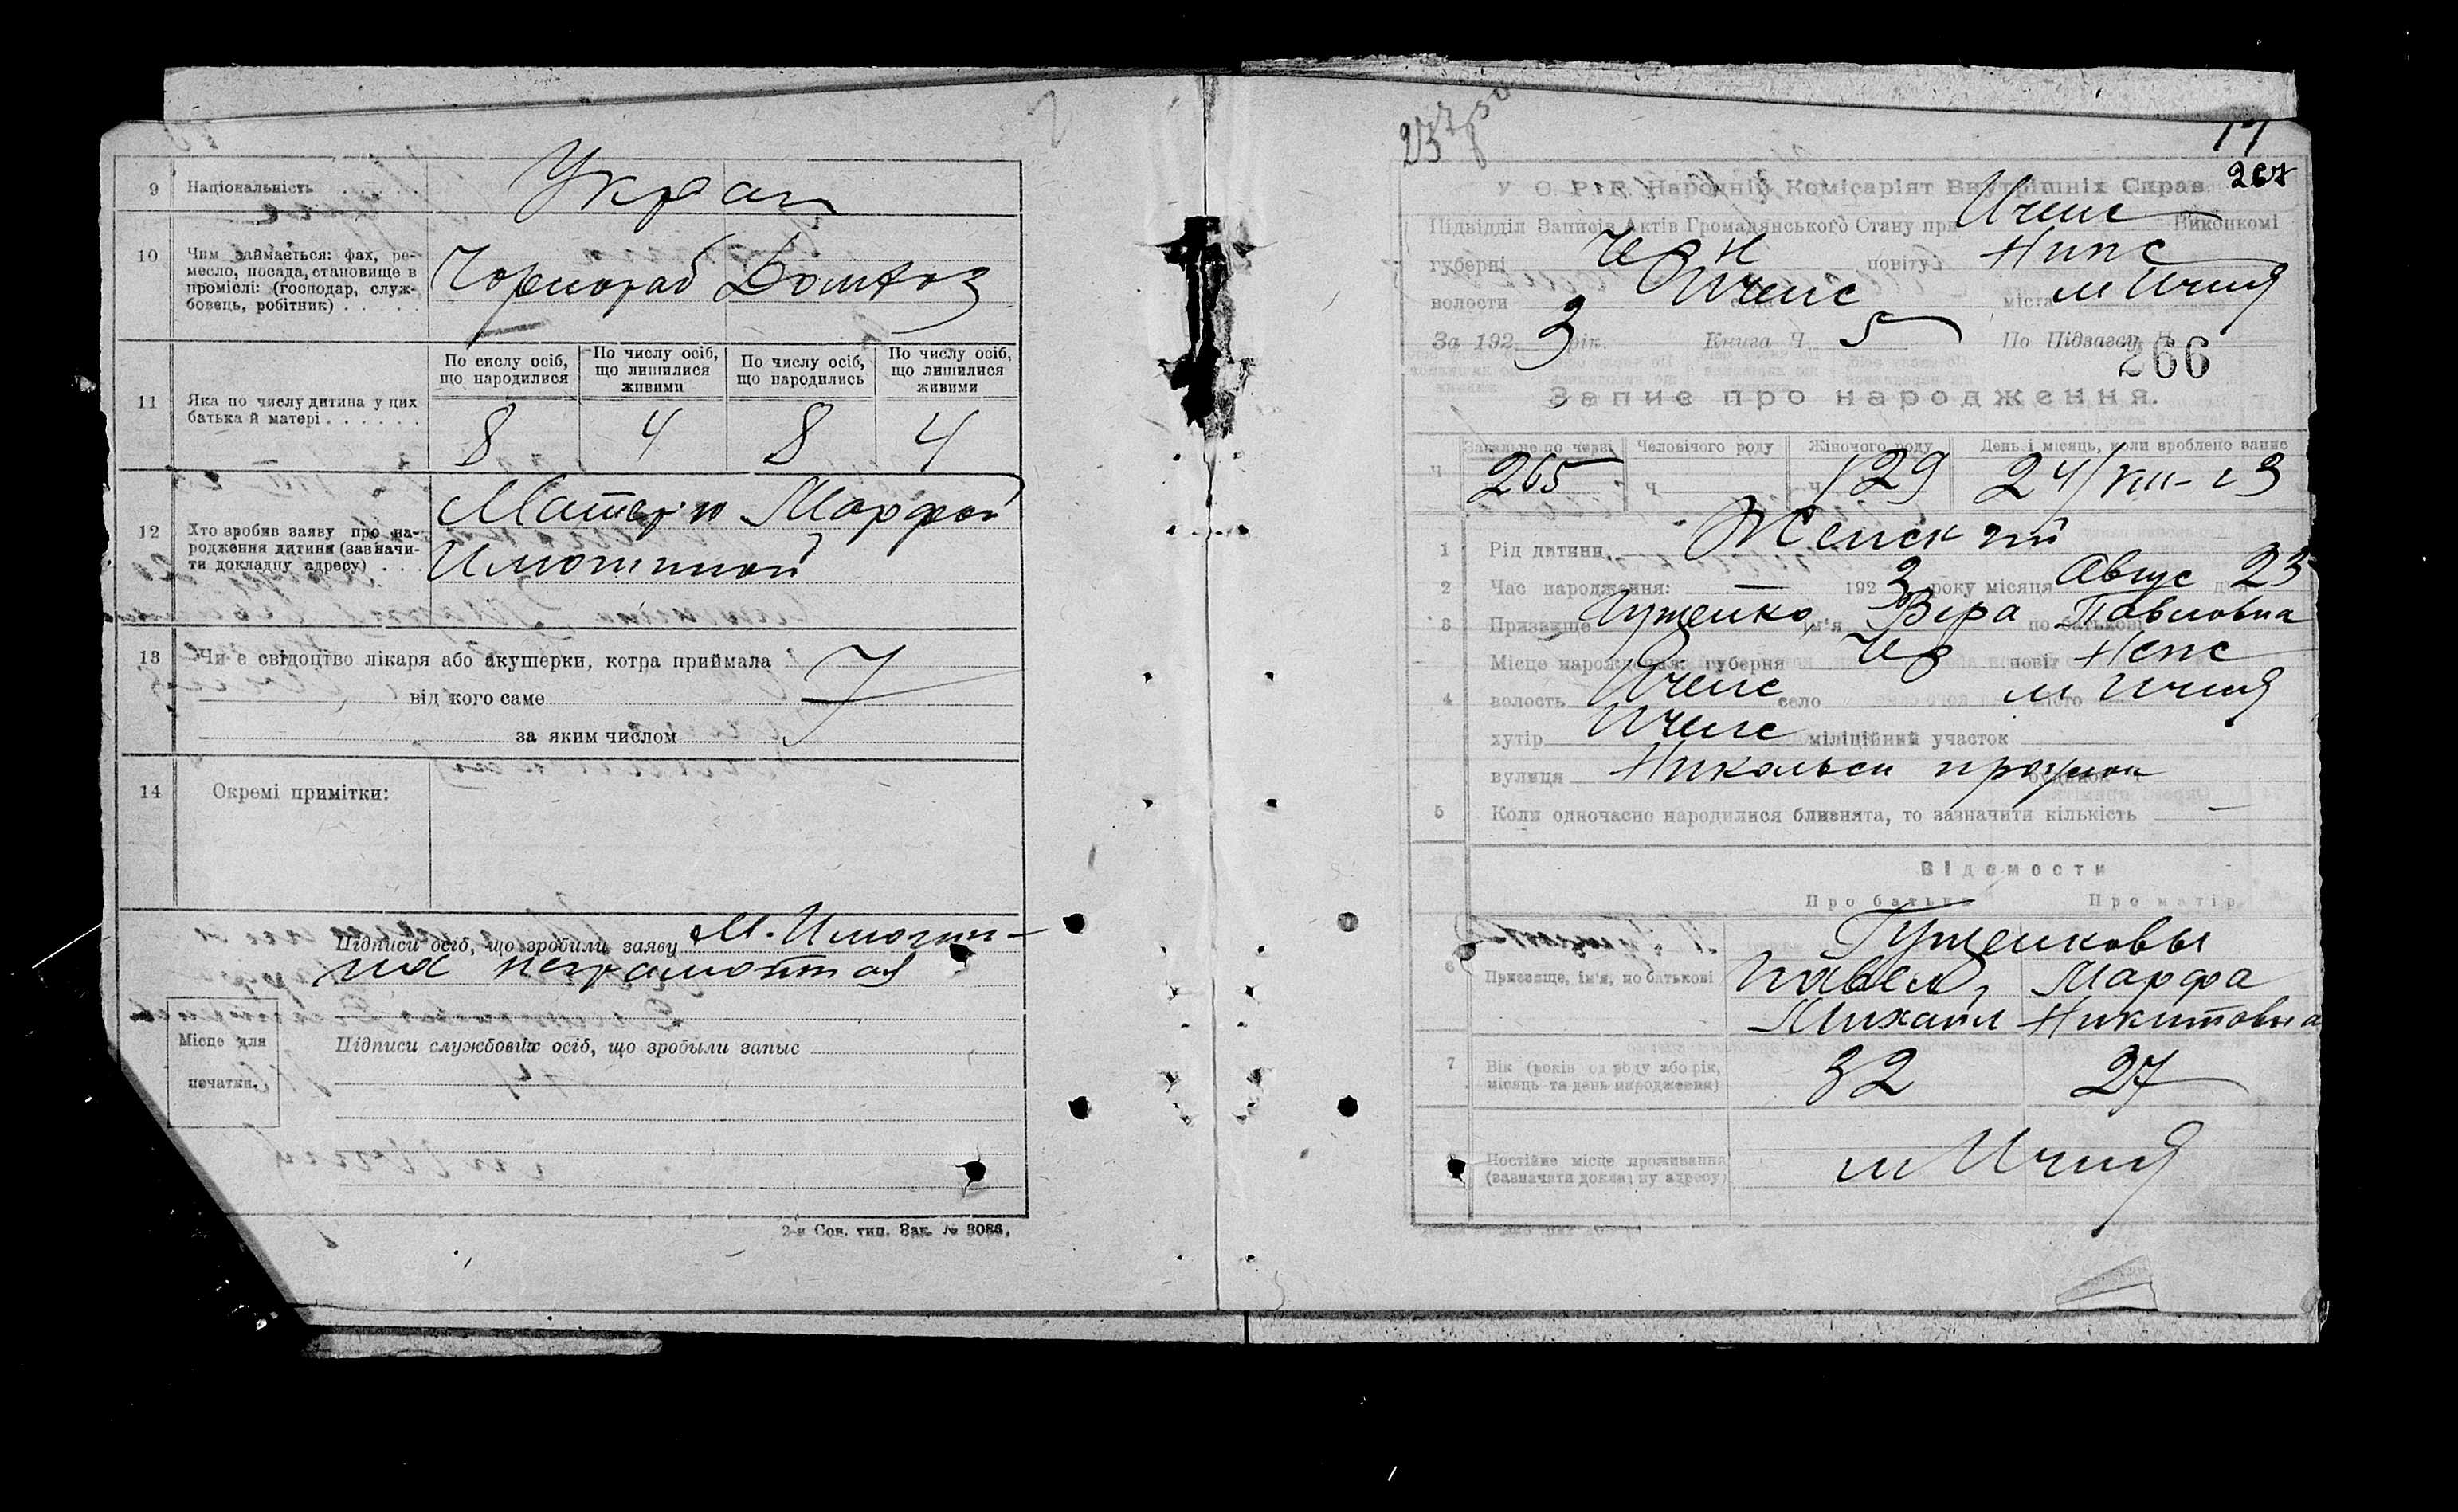 9 Національність Украи
10 Чим займається: фах, ре-
месло, посада, становище в
проміслі: (господар, служ-
бовець, робітник)
Чорнораб Домхоз
11 Яка по числу дитина у цих
батька й матері
По числу осіб,
що народилися
По числу осіб,
що лишилися
живими
По числу осіб,
що народились
По числу осіб,
що лишилися
живими
8 4 8 4
12 Хто зробив заяву про на-
родження дитини (зазначи-
ти докладну адресу)
Матерю Марфой
13 Чи є свідоцтво лікаря або акушерки, котра приймала
від кого саме
за яким числом
14 Окремі примітки:
Підписи осіб, що зробили заяву М.
неграмотная
Місце для
печатки.
Підписи службових осіб, що зробыли запыс
2-я Сов. тип. Зак. № 3086.
17
267
У. С. Р. Р. Народній Комісаріят Внутрішніх Справ
Підвідділ Записів Актів Громадянського Стану при Ичнс Виконкомі
губерні Черн повіту Нипс
волости Ичнс села міста м Ичня
За 192 3 рік. Книга Ч. 5 По Підзагсу Ч.
266
Запис про народження.
Загально по черзі Человічого роду Жіночого роду День і місяць, коли зроблено запис
Ч 265 Ч Ч 129 24/VIII-23
1 Рід дитини Женский
2 Час народження: — 192 3 року місяця Авгус дня 23
3 Призвище Гуженко ім'я Вера по батькові Павловна
Місце народження: губерня Чер повіт Непс
4 волость Ичнс село місто м Ичня
хутір Ичнс міліційний участок
вулиця Никольск будинок
5 Коли одночасно народилися близнята, то зазначити кількість —
Відомости
Про батька Про матір
6 Призвище, ім'я, по батькові
Гуженковы
Павел, Марфа
Михаил Никитовна
7 Вік (років од роду або рік,
місяць та день народження)
32 27
Постійне місце проживання
(зазначити докладну адресу)
м Ичня